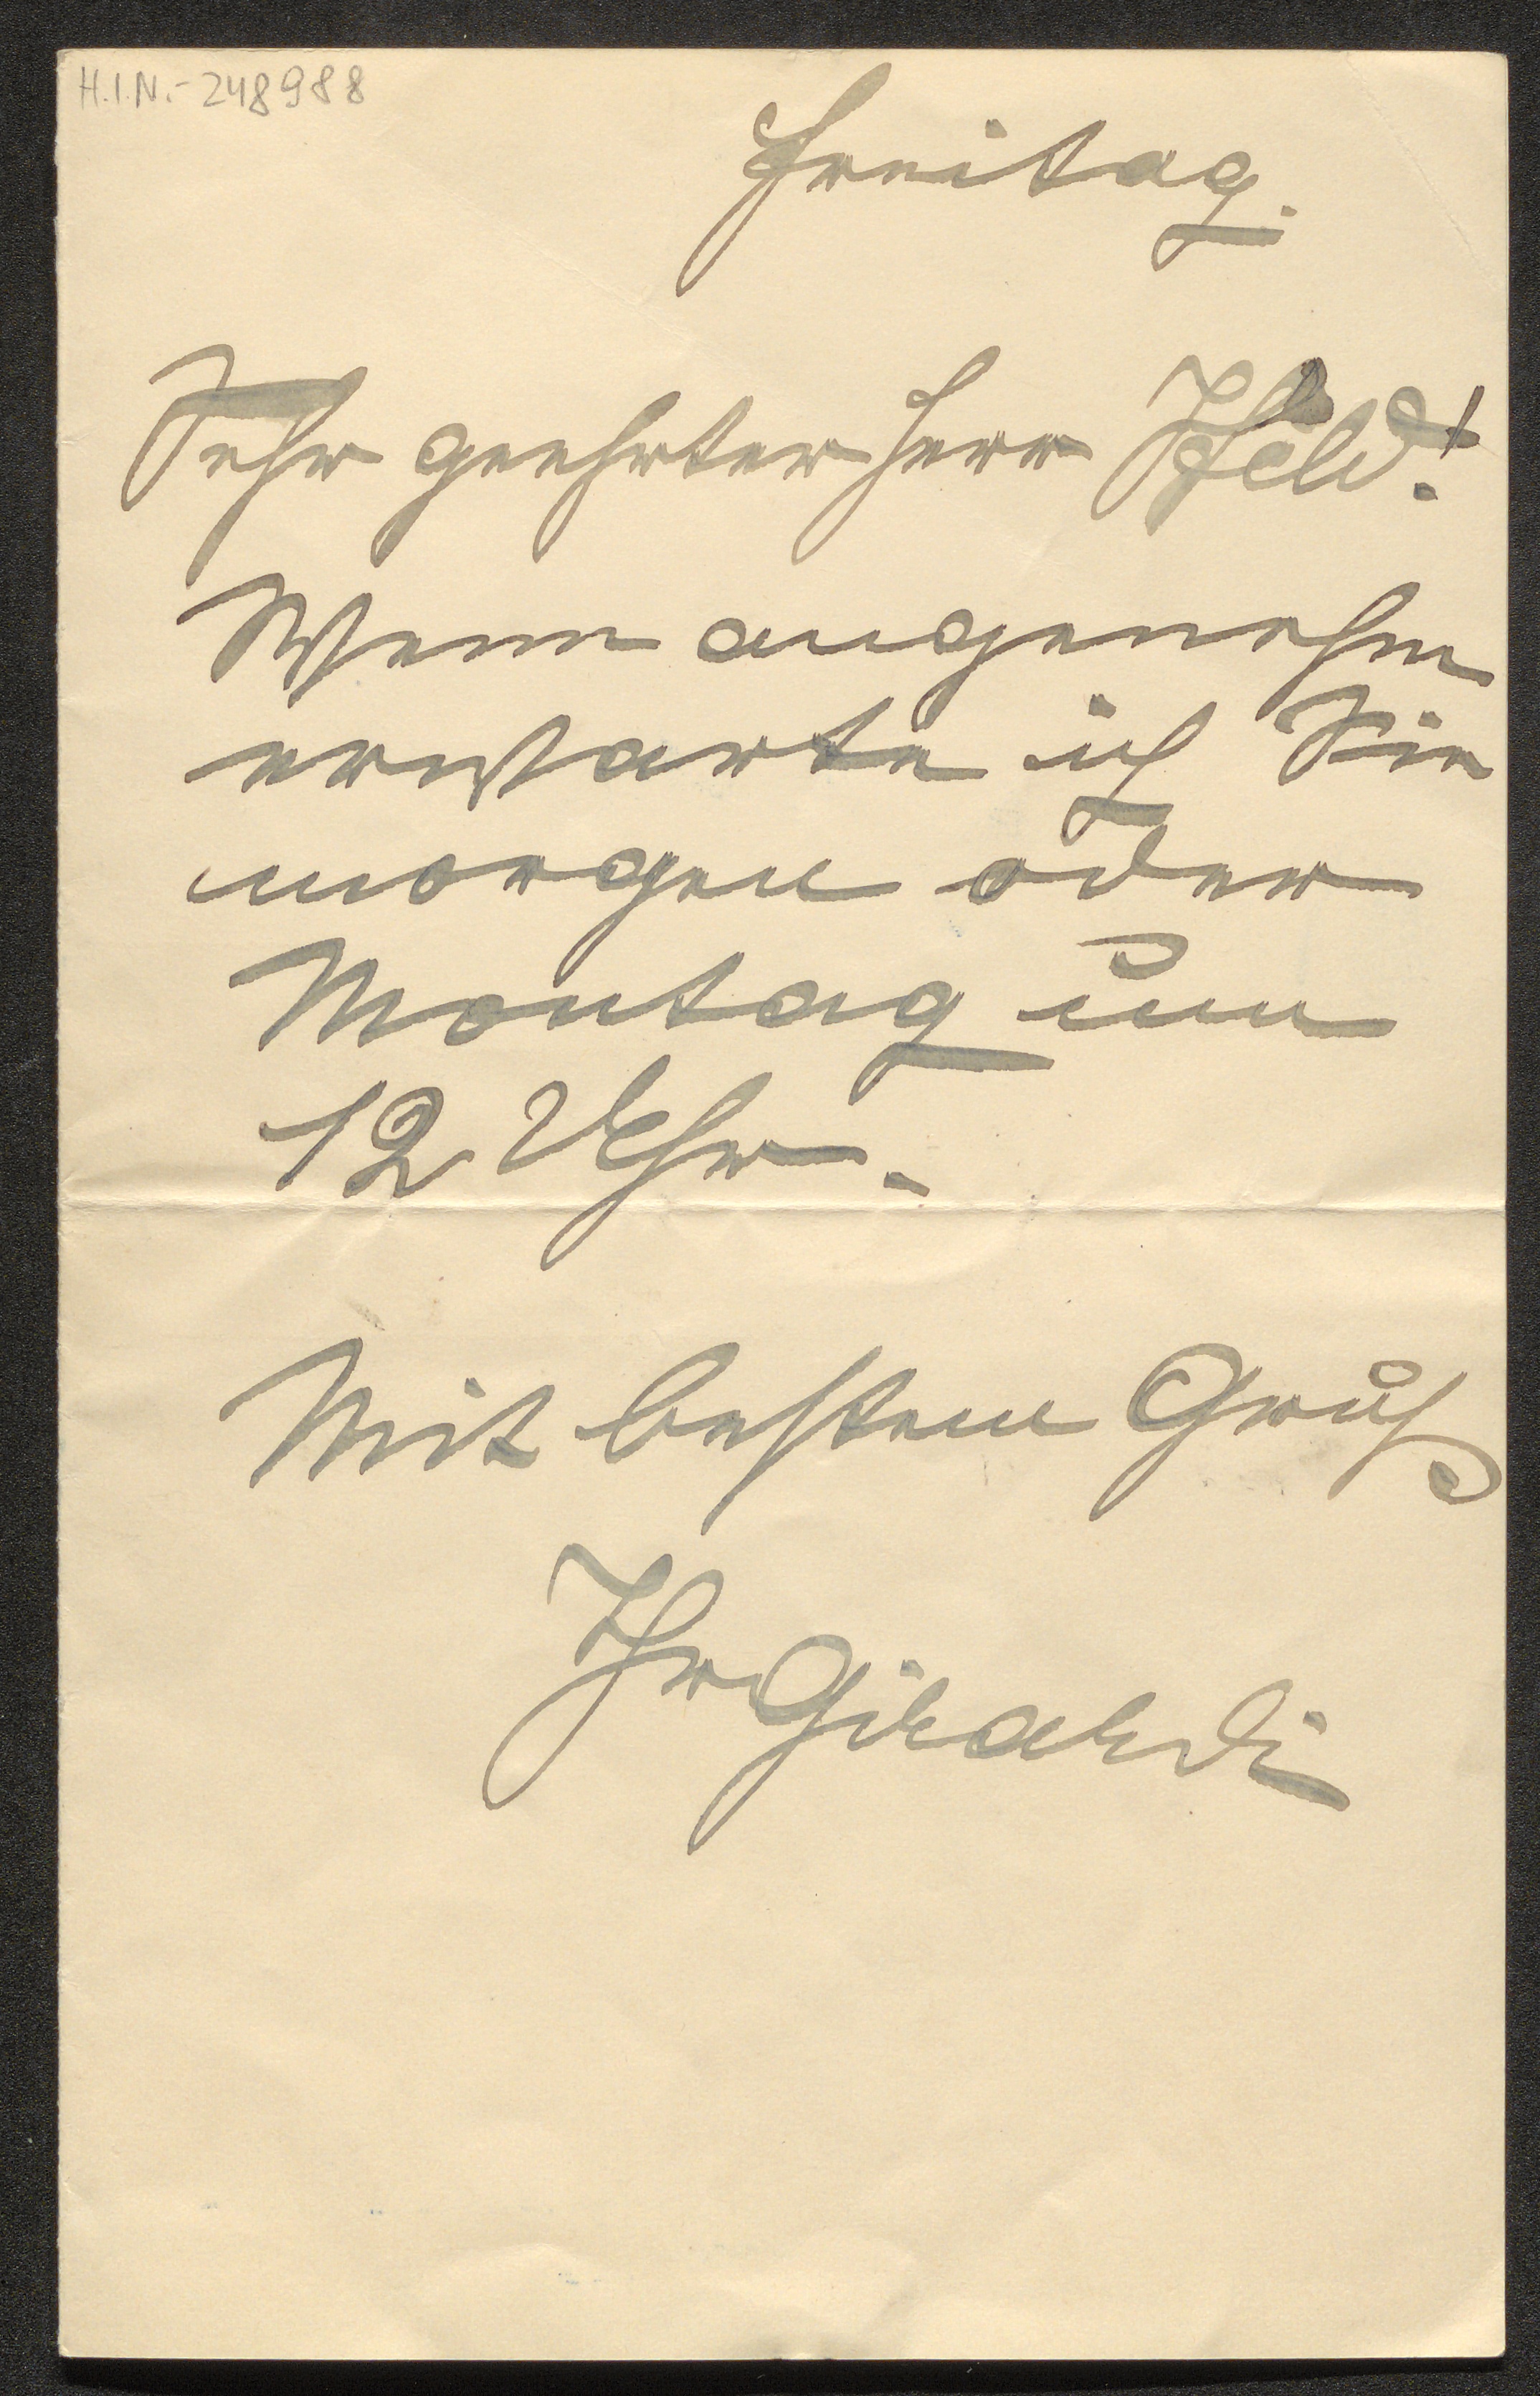 H.I.N.-248988
Freitag.
Sehr geehrter Herr Held!
Wenn angenehm
erwarte ich Sie
morgen oder
Montag um
12 Uhr.
Mit bestem Gruß
Ihr Girardi